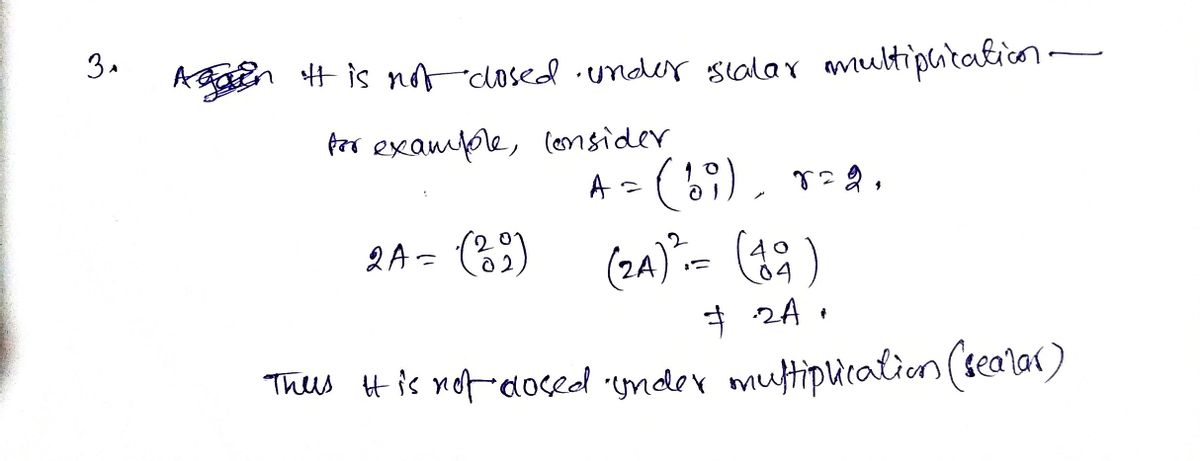 3. Again H is not closed under scalar multiplication —
for example, consider
A = (1 0
0 1), r = 2,
2A = (2 0
0 2) (2A)² = (4 0
0 4)
≠ 2A.
Thus H is not closed under multiplication (scalar)